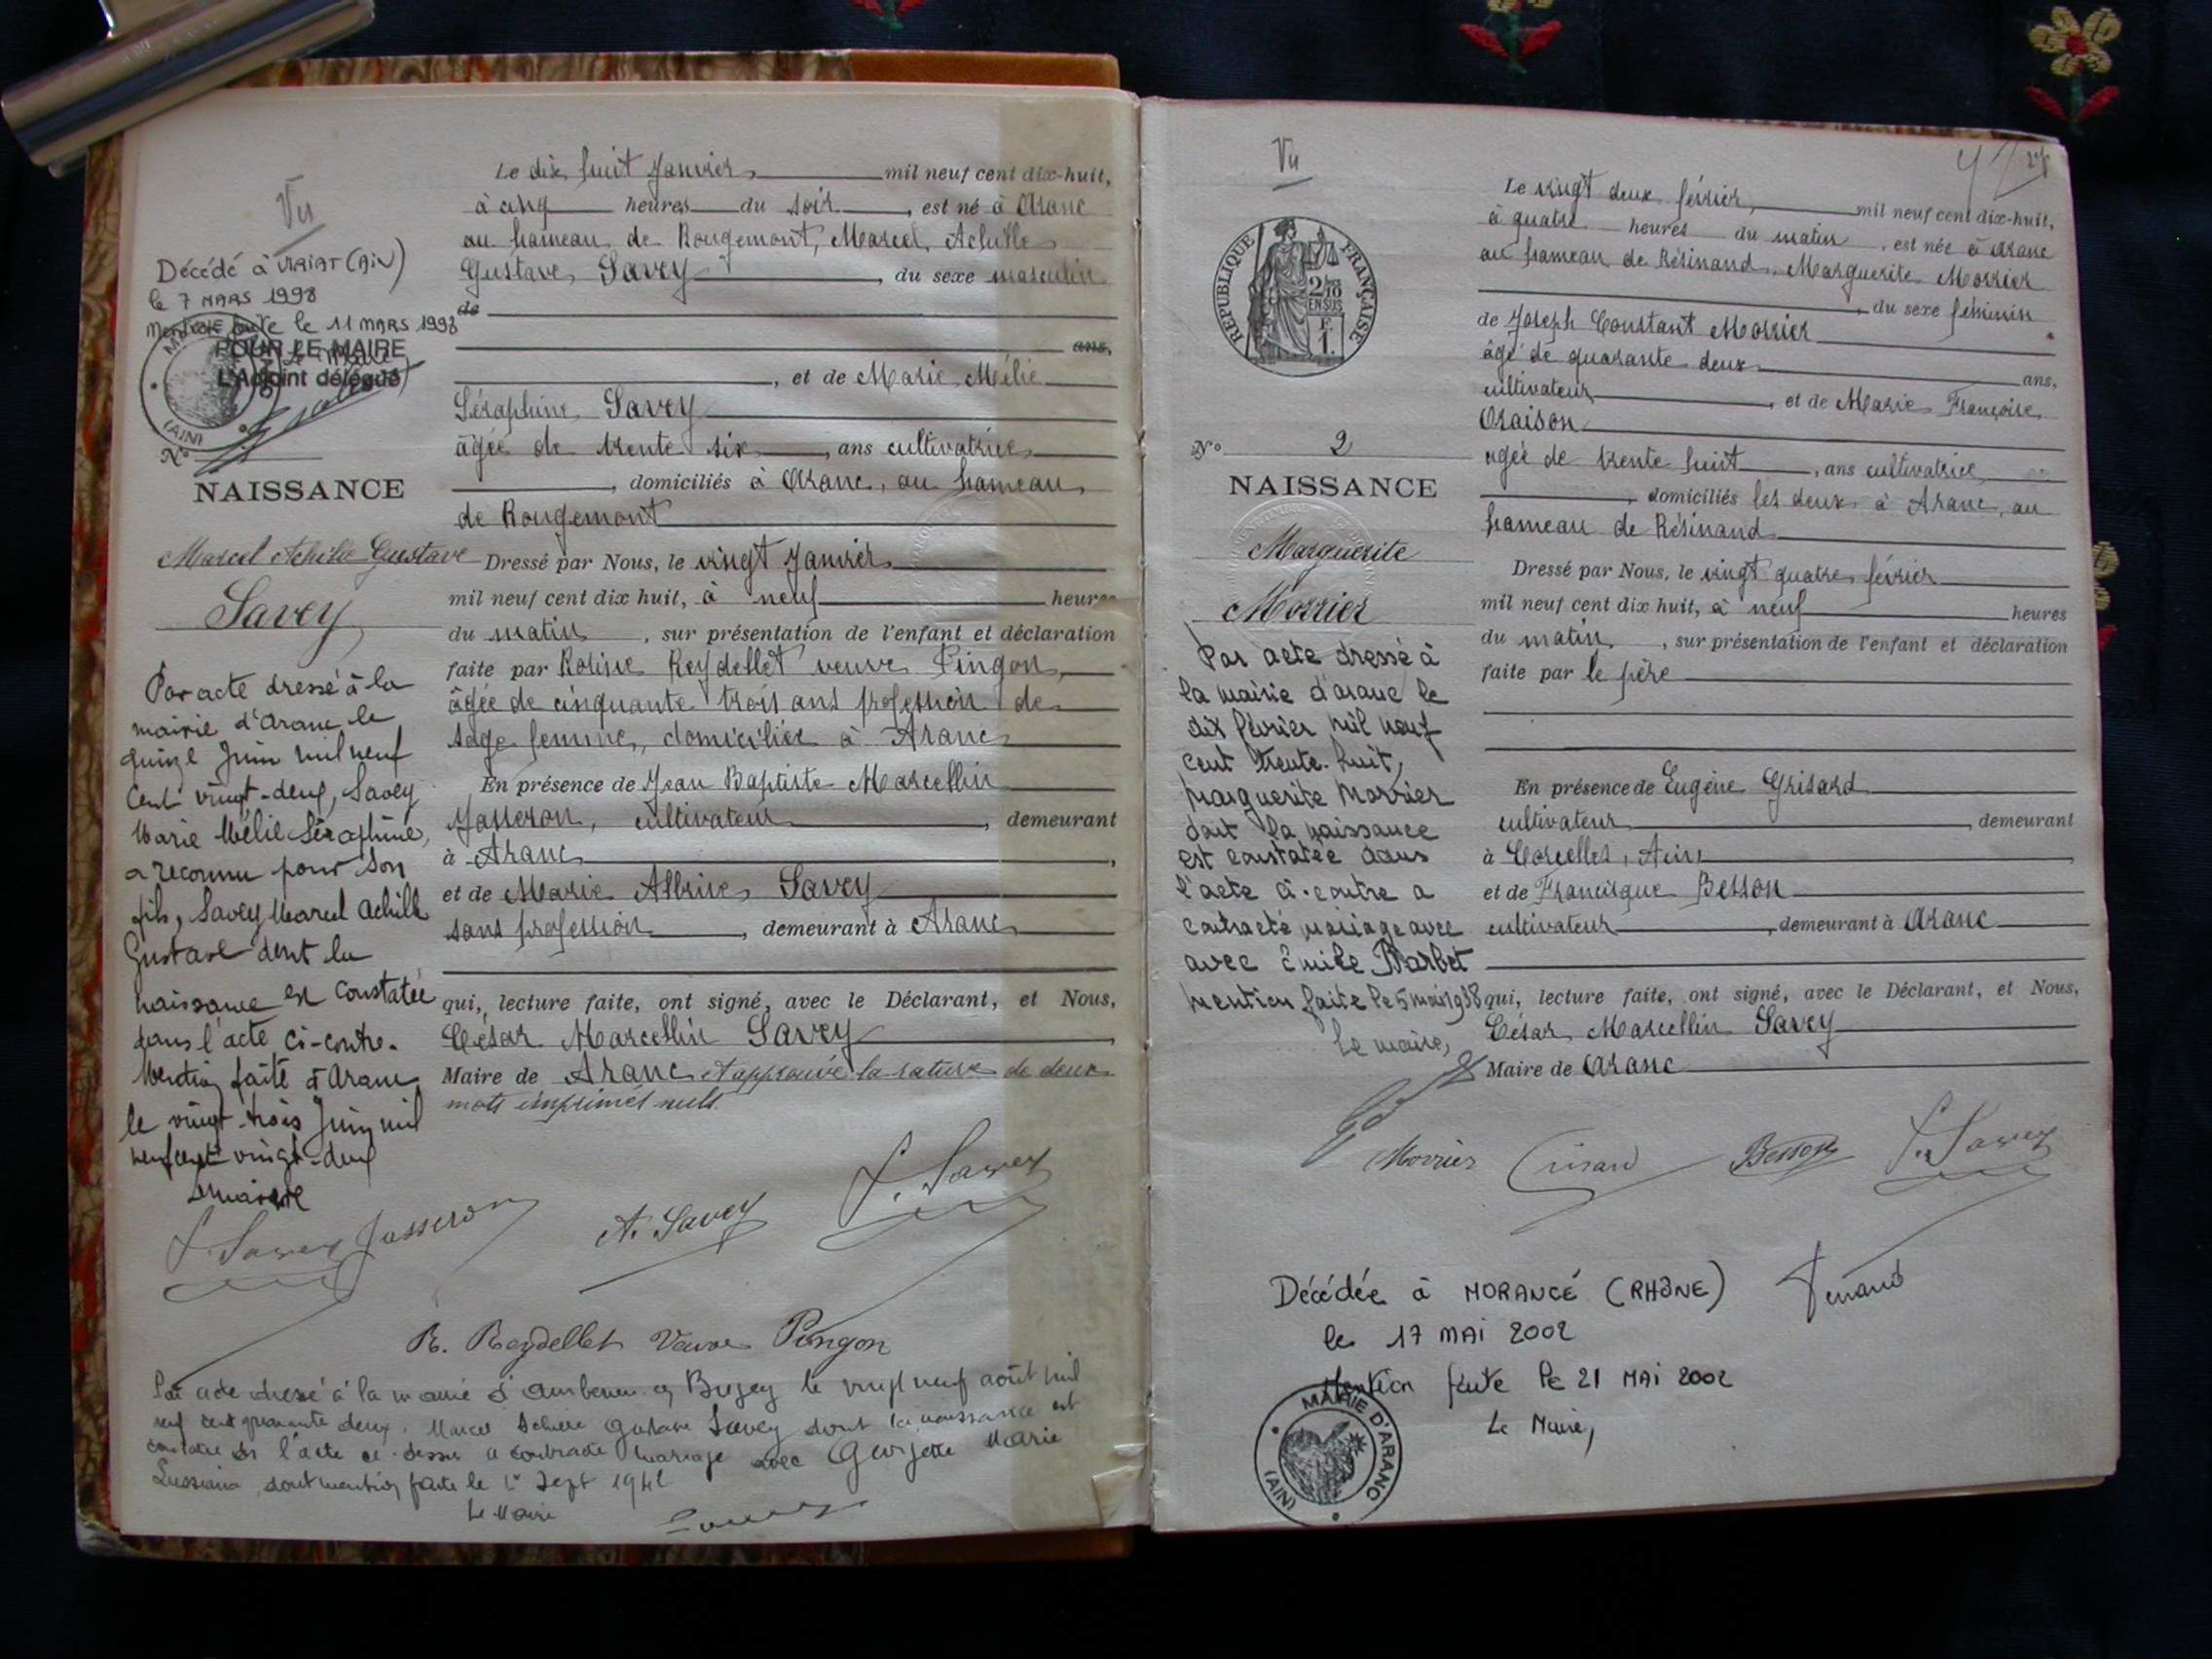 Vu
Décédé à VIRIAT (AIN)
le 7 MARS 1998
Mention faite le 11 MARS 1998
POUR LE MAIRE
L'Adjoint délégué
(AIN)
N°
NAISSANCE
Marcel Achille Gustave
Savey
Par acte dressé à la
mairie d'Aranc le
quinze Juin mil neuf
cent vingt-deux, Savey
Marie Mélie Séraphine,
a reconnu pour son
fils, Savey Marcel Achille
Gustave dont la
naissance est constatée
dans l'acte ci-contre.
Mention faite à Aranc
le vingt-trois Juin mil
neuf cent vingt-deux
Le maire
Le dix huit Janvier mil neuf cent dix-huit,
à cinq heures du soir, est né à Aranc
au hameau de Rougemont, Marcel, Achille
Gustave Savey, du sexe masculin
de
ans,
, et de Marie, Mélie
Séraphine Savey
âgée de trente six, ans cultivatrice
, domiciliés à Aranc, au hameau
de Rougemont
Dressé par Nous, le vingt Janvier
mil neuf cent dix huit, à neuf heures
du matin, sur présentation de l'enfant et déclaration
faite par Rosine Reydellet veuve Pingon,
âgée de cinquante trois ans profession de
sage femme, domiciliée à Aranc
En présence de Jean Baptiste Marcellin
Jasseron, cultivateur, demeurant
à Aranc,
et de Marie Albine Savey
sans profession, demeurant à Aranc
qui, lecture faite, ont signé, avec le Déclarant, et Nous,
César Marcellin Savey,
Maire de Aranc et approuvé la rature de deux
mots imprimés nuls.
Savey Jasseron A. Savey Savey
R. Reydellet Veuve Pingon
Par acte dressé à la mairie d'Ambérieu en Bugey le vingt neuf août mil
neuf cent quarante deux, Marcel Achille Gustave Savey dont la naissance est
constatée ds l'acte ci-dessus a contracté mariage avec Georgette Marie
dont mention faite le 1er Sept 1942
Le Maire
Vu
RÉPUBLIQUE FRANÇAISE
2/10
EN SUS
F.
1.
N° 2
NAISSANCE
Marguerite
Morrier
Par acte dressé à
la mairie d'Aranc le
dix février mil neuf
cent trente-huit,
Marguerite Morrier
dont la naissance
est constatée dans
l'acte ci-contre a
contracté mariage avec
avec Emile Barbet
Mention faite le 5 mai 1938
Le maire,
Le vingt deux février, mil neuf cent dix-huit,
à quatre heures du matin, est née à Aranc
au hameau de Résinand, Marguerite Morrier
, du sexe féminin
de Joseph Constant Morrier
âgé de quarante deux ans,
cultivateur, et de Marie Françoise
Oraison
agée de trente huit, ans cultivatrice,
, domiciliés les deux à Aranc, au
hameau de Résinand
Dressé par Nous, le vingt quatre février
mil neuf cent dix huit, à neuf heures
du matin, sur présentation de l'enfant et déclaration
faite par le père
En présence de Eugène Grisard
cultivateur, demeurant
à Corcelles, Ain,
et de Francisque Besson
cultivateur, demeurant à Aranc
qui, lecture faite, ont signé, avec le Déclarant, et Nous,
César Marcellin Savey
Maire de Aranc
Morrier Grisard Besson Savey
Décédée à MORANCÉ (RHÔNE)
le 17 MAI 2002
Mention faite le 21 MAI 2002
Le Maire,
MAIRIE D'ARANC
(AIN)